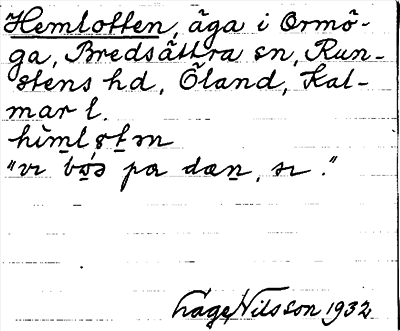 Hemlotten, äga i Ormö-
ga, Bredsättra sn, Run-
stens hd, Öland, Kal-
mar l.
"vi på dæn, sr."
Låge Nilsson 1932